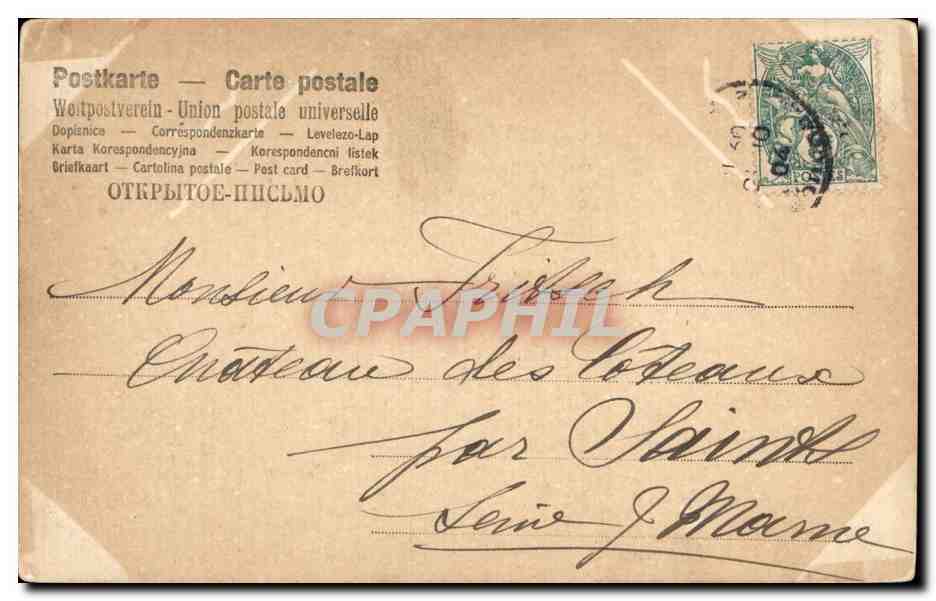 Postkarte — Carte postale
Weltpostverein - Union postale universelle
Dopisnice — Correspondenzkarte — Levelezo-Lap
Karta Korespondencyjna — Korespondencni listek
Briefkaart — Cartolina postale — Post card — Brefkort
ОТКРЫТОЕ-ПИСЬМО
04
Monsieur Fritsch
CPAPHIL
Château des Côteaux
par Saints
Seine & Marne